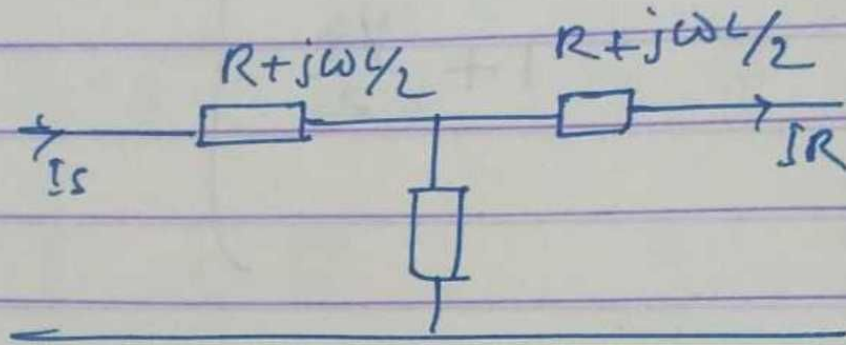 R+jωL/2 R+jωL/2
Is IR